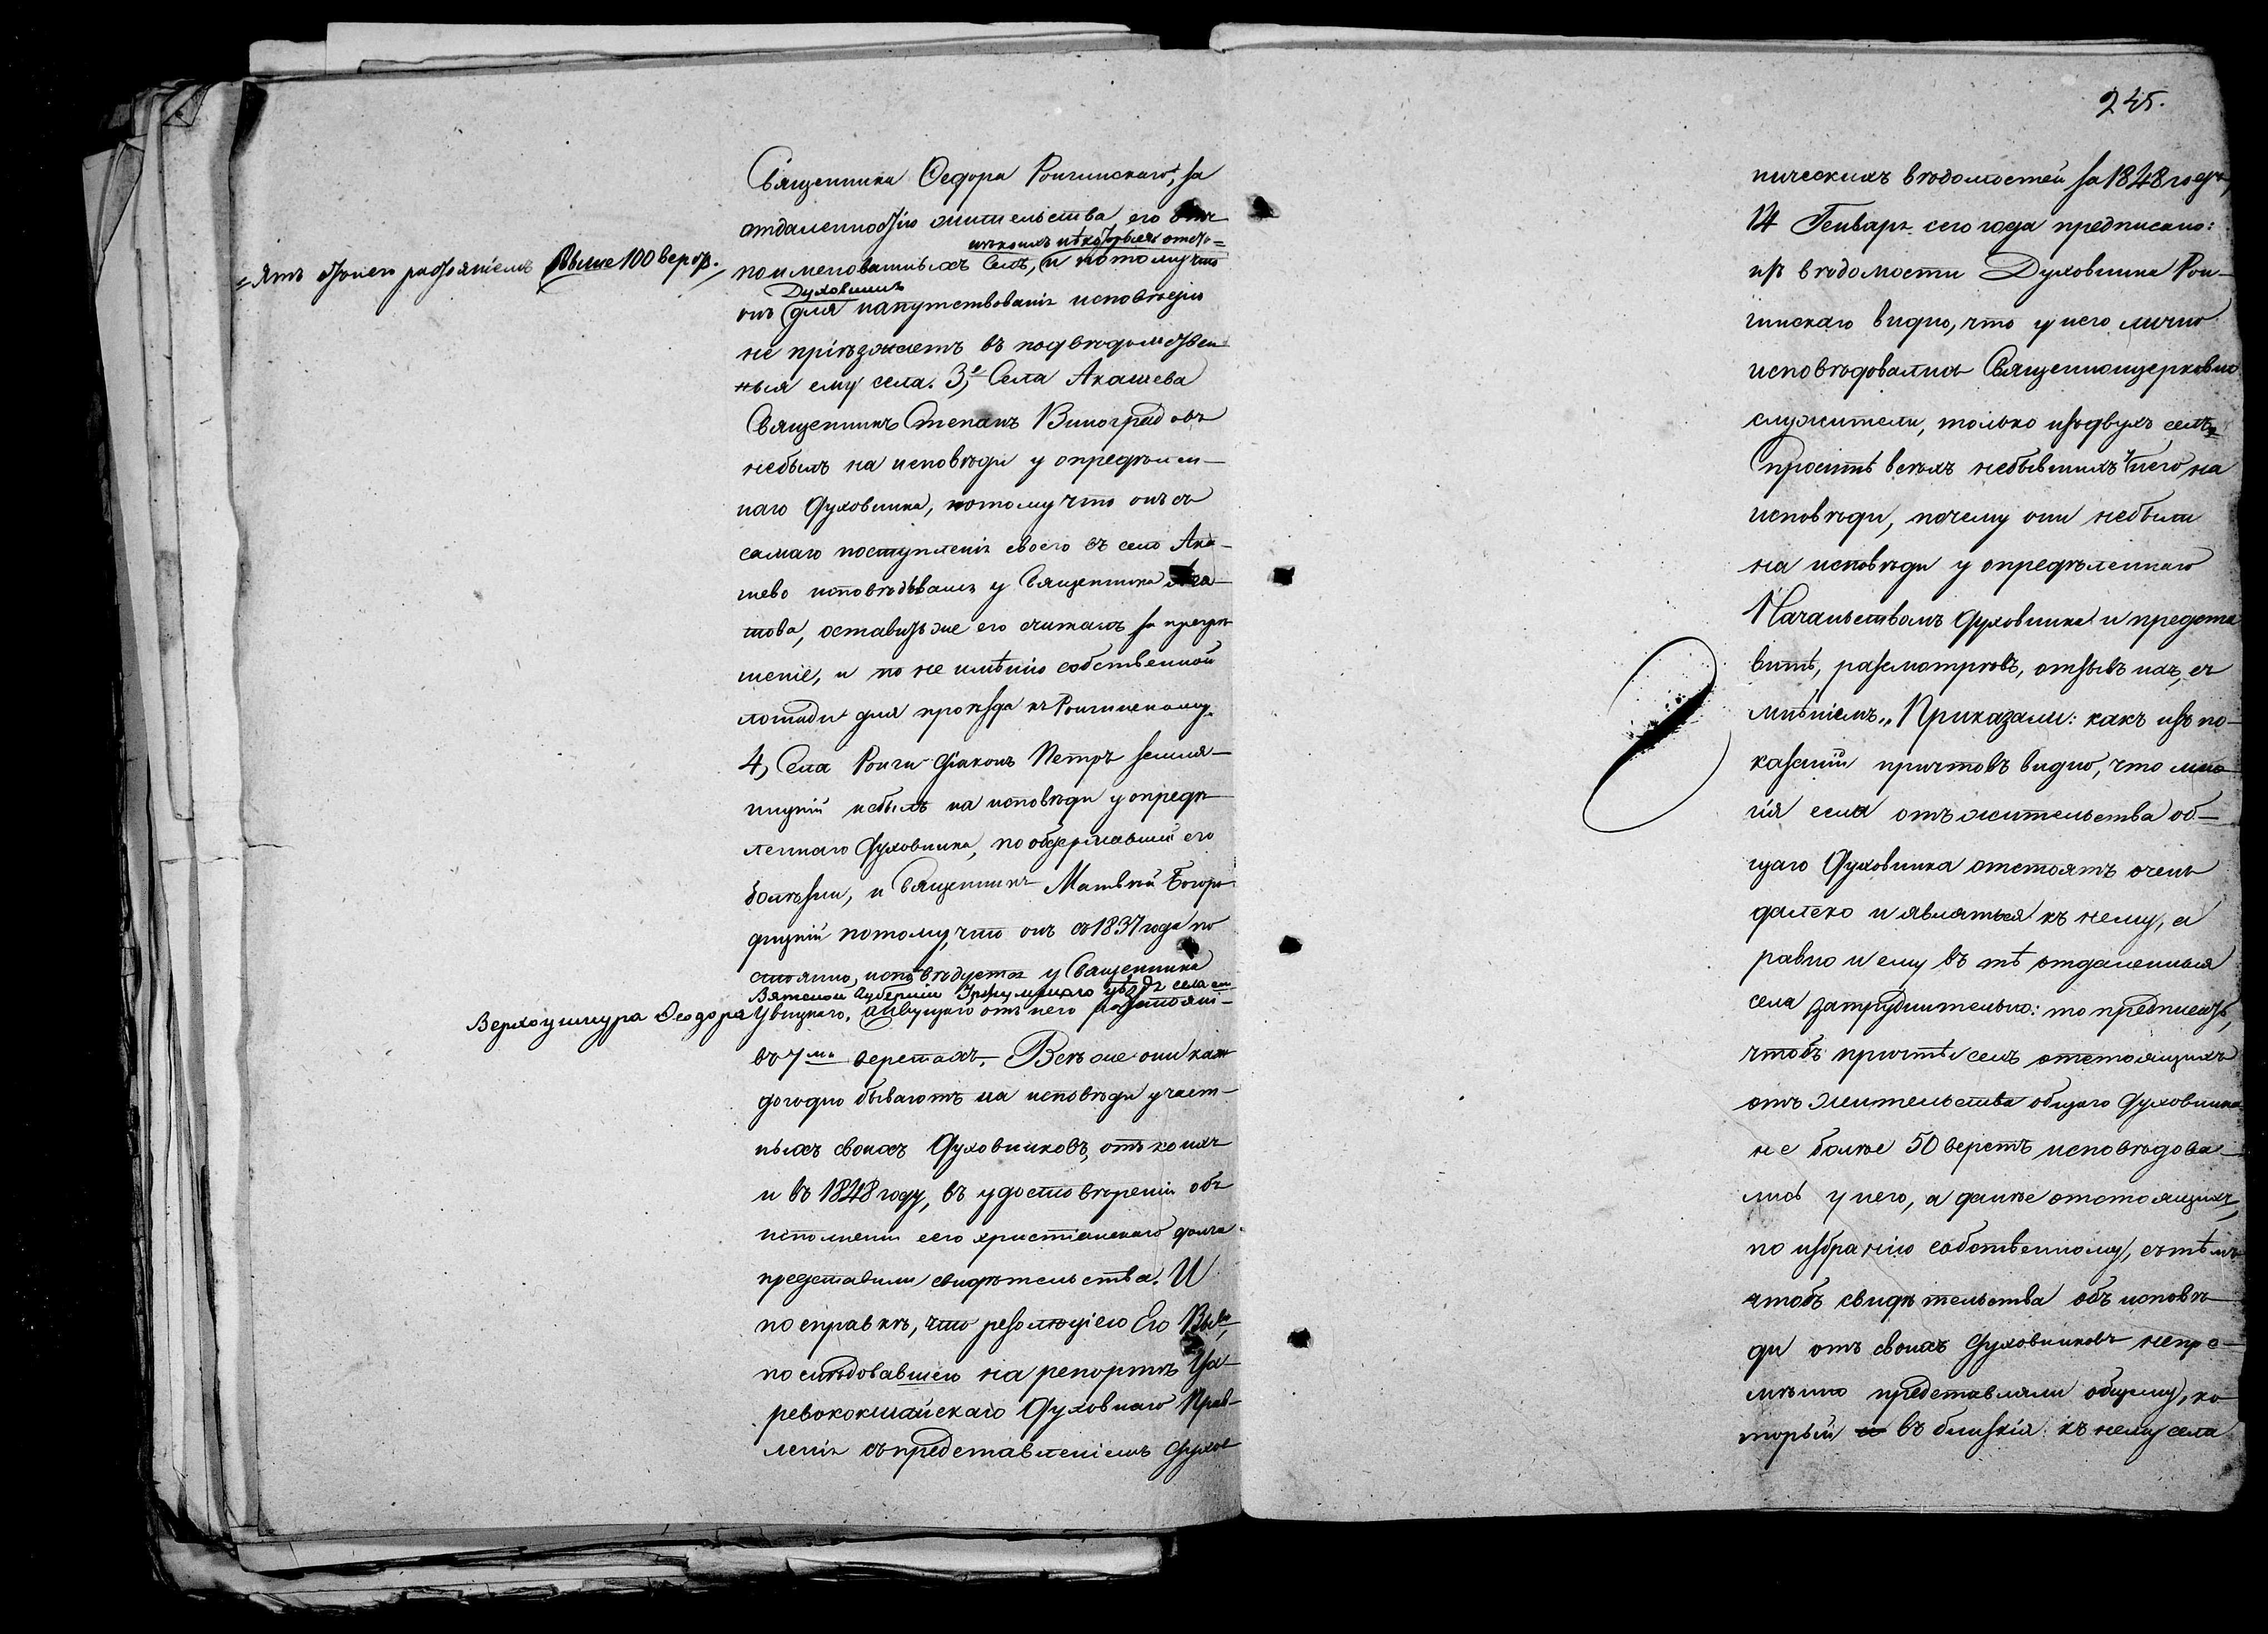 Священника Ѳедора Ронгинскаго, за
отдаленностію жительства его отъ
изъ коихъ нѣкоторыя отсто=
=ятъ отъ него разстояніемъ свыше 100 верстъ.
поименованныхъ селъ, и потому что
Духовникъ
онъ для напутствованія исповѣдію
не пріѣзжаетъ въ подвѣдомствен
ныя ему села. 3, Села Акашева
Священникъ Степанъ Виноградовъ
небылъ на исповѣди у опредѣлен-
наго Духовника, потому что онъ съ
самаго поступленія своего въ село Ака-
шево исповѣдывался у Священника
оставить же его считалъ за прегрѣ
шеніе, и по не имѣнію собственной
лошади для проѣзда къ Ронгинскому.
4, Села Ронги Діаконъ Петръ Земля-
ницкій небылъ на исповѣди у опредѣ
леннаго Духовника, по обдержавшей его
болѣзни, и Священникъ Матвѣй Богоро
дицкій потому, что онъ съ 1837 года по
стоянно исповѣдуется у Священника
Вятской Губерніи Уржумскаго уѣзда села
Верхоушнура Ѳеодора Увицкаго, живущаго отъ него разстояні-
въ 7ми верстахъ. Всѣ же они каж
догодно бываютъ на исповѣди у част-
ныхъ своихъ Духовниковъ, отъ коихъ
и въ 1848 году, въ удостовѣреніи объ
исполненіи сего христіанскаго долга
представили свидѣтельства. И
по справкѣ, что резолюціею Его
послѣдовавшею на репортѣ Ца-
ревококшайскаго Духовнаго Прав-
ленія съ представленіемъ Духов
245.
ническихъ вѣдомостей за 1848 годъ,
14 Генваря сего года предписано:
изъ вѣдомости Духовника Рон-
гинскаго видно, что у него лично
исповѣдовались Священноцерковно
служители, только изъ двухъ селъ,
Спросить всѣхъ небывшихъ у него на
исповѣди, почему они небыли
на исповѣди у опредѣленнаго
Начальствомъ Духовника и предста
вить, разсмотрѣвъ, отзывъ ихъ, съ
мнѣніемъ„ Приказали: какъ изъ по-
казаній причтовъ видно, что мно
гія села отъ жительства об-
щаго Духовника отстоятъ очень
далеко и являться къ нему, а
равно и ему въ тѣ отдаленныя
села затруднительно: то предписать,
чтобъ причты селъ отстоящихъ
отъ жительства общаго Духовника
не болѣе 50 верстъ исповѣдова-
лись у него, а далѣе отстоящихъ,
по избранію собственному, съ тѣмъ
чтобъ свидѣтельства объ исповѣ
ди отъ своихъ Духовниковъ непре-
мѣнно представляли общему, ко
торый въ близкія къ нему села